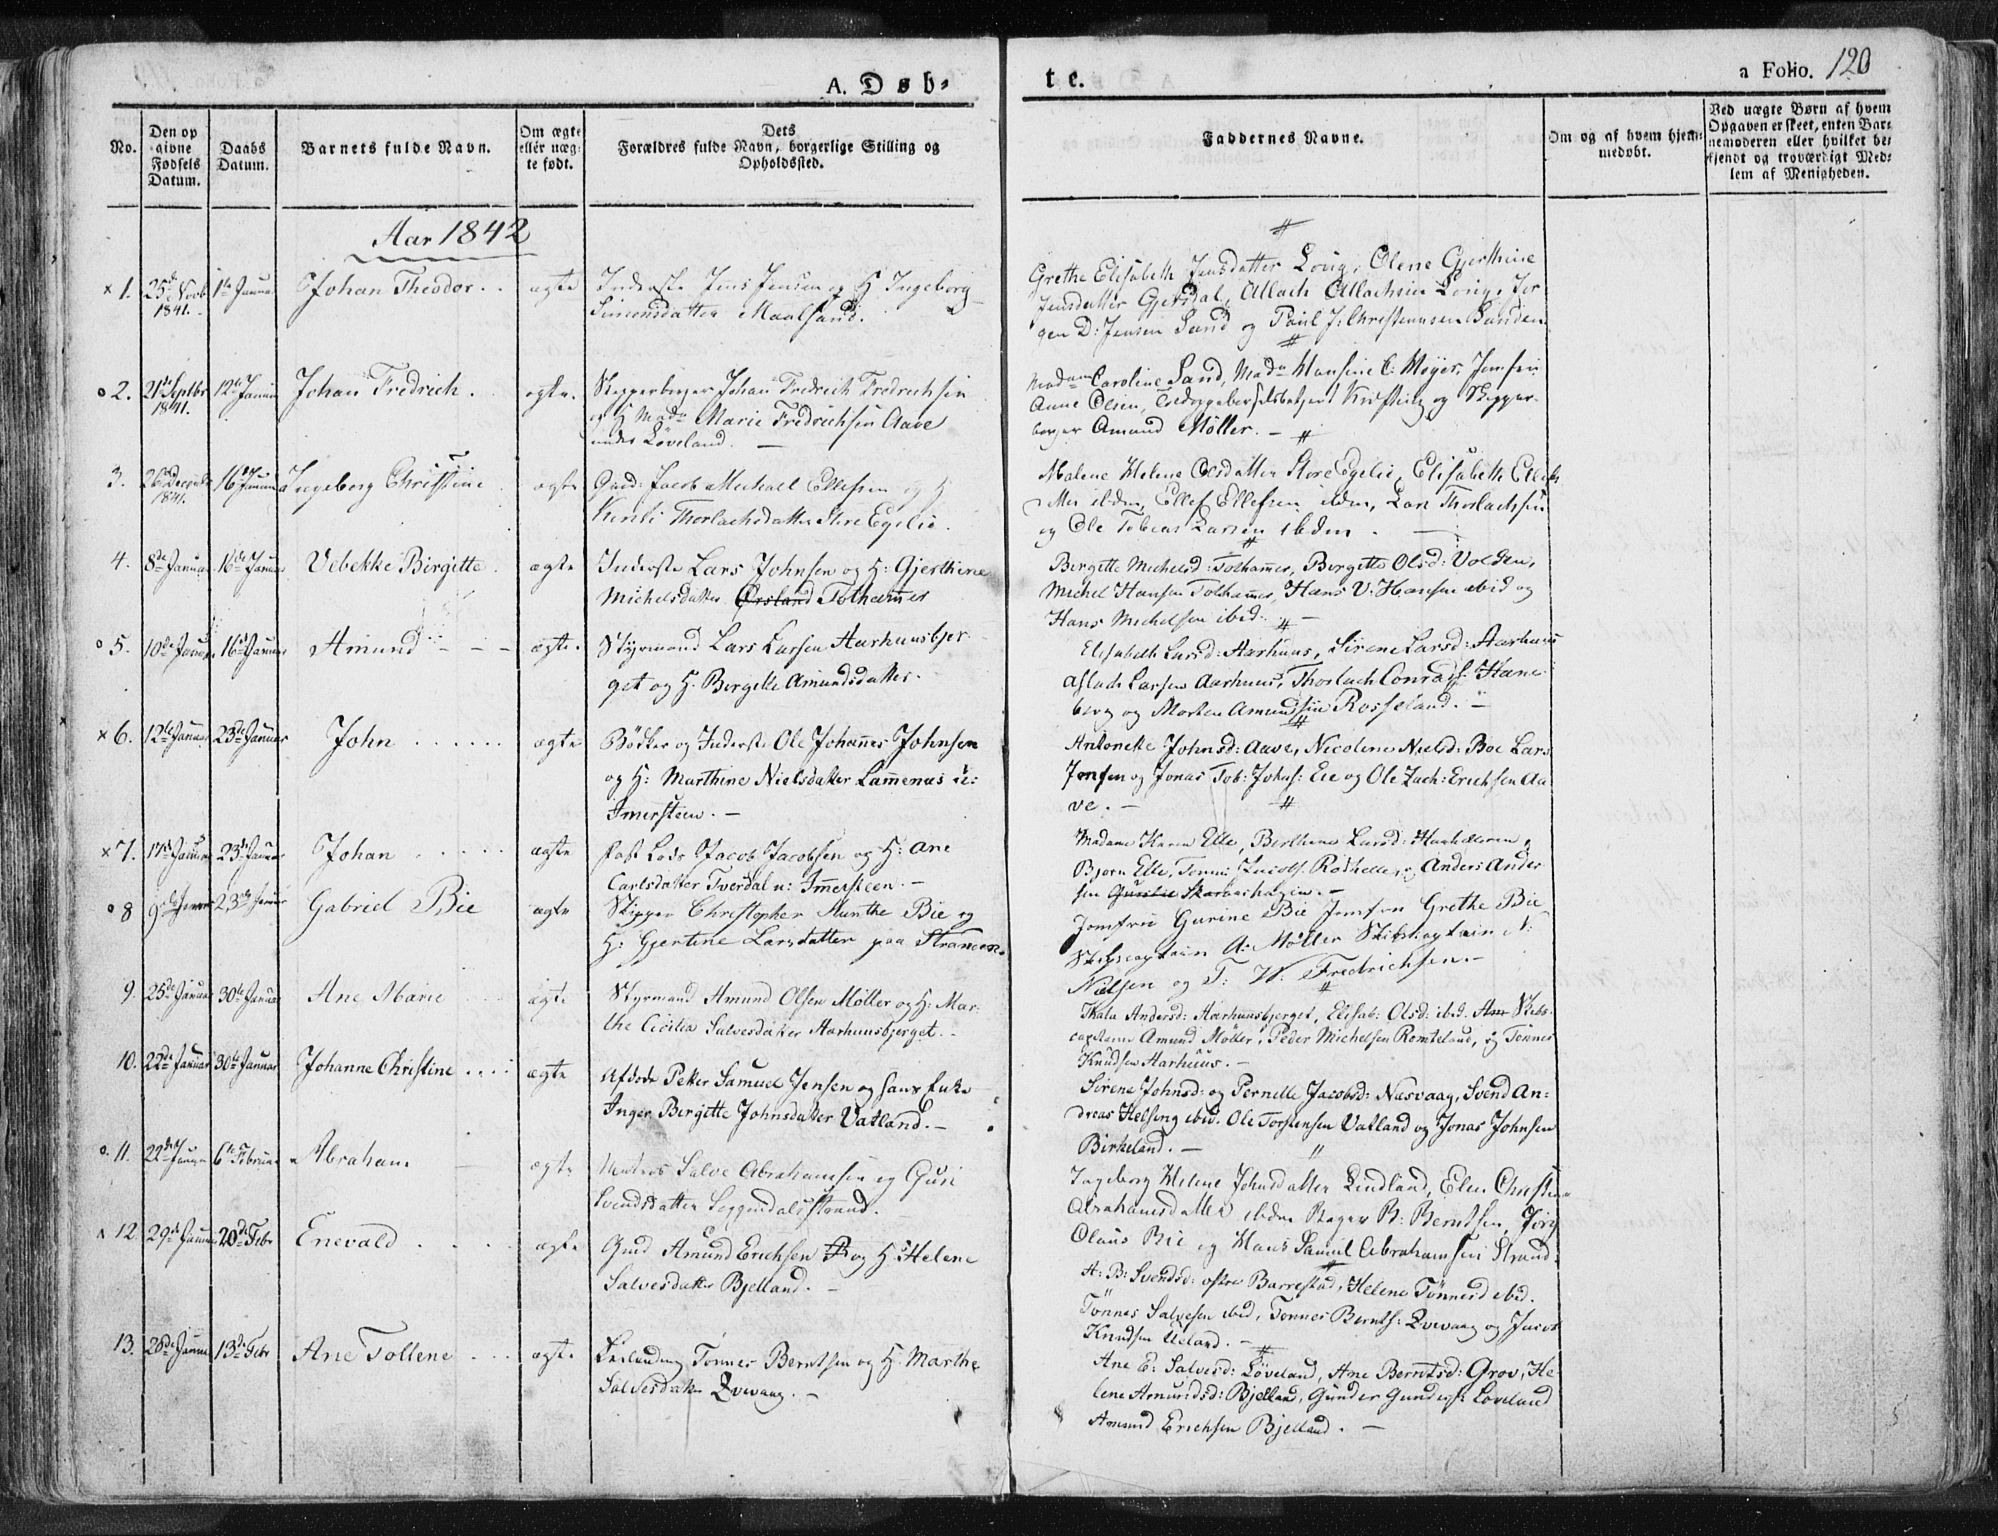 A. Døb-
te.
a Folio. 120
No.
Den op
givne
Fødsels
Datum.
Daabs
Datum.
Barnets fulde Navn.
Om ægte
eller uæg-
te født.
Dets
Forældres fulde Navn, borgerlige Stilling og
Opholdssted.
Faddernes Navne.
Om og af hvem hjem-
medøbt.
Ved uægte Børn af hvem
Opgaven er skeet, enten Bar-
nemoderen eller hvilket be-
kjendt og troværdigt Med-
lem af Menigheden.
Aar 1842
× 1. 25de Novb 1841. 1te Januar Johan Theodor ægte
Inderste Jens Jensen og H. Ingeborg
Simonsdatter Maalsand.
Grethe Elisabeth Jensdatter Olene Gjerthine
Jensdatter Gjersdal, Atlach Atlachsen Jør-
gen D: Jensen Sand og Paul J: Christensen Sanden
o 2. 21de Septbr 1841. 12te Januar Johan Fredrich ægte.
Skipperborger Johan Fredrich Fredrichsen
og H Mad. Marie Fredrichsen Aave
under Løveland.
Madam Caroline Sand, Mad. Hansine C. Møyer, Jomfru
Anne Olsen, og Skipper-
borger Amund Møller. -
3. 26de Decembr 1841. 16de Januar Ingeborg Christine ægte
Gaard: Jacob Michall Ellefsen og H
Thorlachsdatter Store Egelie.
Malene Helene Olsdatter Store Egelie, Elisabeth Ellefs-
datter ibdm, Ellef Ellefsen ibdm, Lars Thorlachsen
og Ole Tobias Larsen ibdm.
4. 8de Januar 16de Januar Vebekke Birgitte ægte
Inderste Lars Johnsen og H: Gjerthine
Michelsdatter Ørsland Tothammer
Bergette Michelsd: Tothammer, Bergette Olsd: Volden,
Michel Hansen Tothammer, Hans V: Hansen ibid og
Hans Michelsen ibid. -
o 5. 10de Januar 16de Januar Amund - - - ægte.
Styrmand Lars Larsen Aarhuusbjer-
get og H. Bergette Amundsdatter.
Elisabeth Larsd: Aarhuus, Sirene Larsd: Aarhuus
Aslach Larsen Aarhuus, Thorlach Conrads: Hane-
berg og Morten Amundsen Rosseland. -
× 6. 12te Januar 23de Januar John . . . . . . ægte
Bödker og Inderste Ole Johannes Johnsen
og H: Marthine Nielsdatter Lammenæs u:
Imersteen. -
Antonette Johnsd: Aave, Nicoline Nielsd: Boe Lars
Jensen og Jonas Tob: Johns: Eie og Ole Zach: Erichsen Aa-
ve. -
× 7. 17de Januar 23de Januar Johan . . . . . ægte
fast Lods Jacob Jacobsen og H: Ane
Carlsdatter Tverdal u: Immersteen. -
Madame Karen Elle, Berthine Larsd:
Bjorn Elle, Tonnes Jacobs. Rothelle, og Anders Ander-
sen
o 8 9de Januar 23de Januar Gabriel Bie ægte
Skipper Christopher Munthe Bie og
H: Gjertine Larsdatter paa Stranden.
Jomfru Gurine Bie Jomfru Grethe Bie
Skibscaptain A: Møller Skibscaptain N:
Nielsen og T: W: Fredrichsen. -
9. 25de Januar 30te Januar Ane Marie ægte
Styrmand Amund Olsen Møller og H: Mar-
the Cicilia Salvesdatter Aarhuusbjerget. -
Thala Andersd: Aarhuusbjerget, Elisab: Olsd: ibid. Skibs-
captein Amund Møller, Peder Michelsen Romteland, og Tønnes
Knudsen Aarhuus. -
10. 22de Januar 30te Januar Johanne Christine . . . . ægte
Afdøde Peter Samuel Jensen og hans Enke
Inger Bergitte Johnsdatter Vatland. -
Sirene Johnsd: og Pernelle Jacobsd: Næsvaag, Svend An-
dreas Helsing ibid. Ole Torstensen Vatland og Jonas Johnsen
Birkeland. -
o 11. 22de Januar 6te Februar Abraham ægte
Matros Salve Abrahamsen og Guri
Svendsdatter Soggendalsstrand.
Ingeborg Helene Johnsdatter Lindland, Elen Christine
Abrahamsdatter ibdm Bager B: Berntsen, Jørg
Olaus Bie og Hans Samuel Abrahamsen Strand.
12. 29de Januar 20de Febr Enevald . . . . ægte
Gmd Amund Erichsen og H: Helene
Salvesdatter Bjelland. -
A: B: Svendsd: østre Barrestad, Helene Tönnesd ibid.
Tönnes Salvesen ibid, Tonnes Bernts: Qvevaag og Jacob
Knudsen Ueland. -
13. 28de Januar 13de Febr Ane Tollene ægte
Tønnes Berntsen og H: Marthe
Salvesdatter Qvevaag. -
Ane E: Salvesd: Løveland, Ane Berntsd: Grov, He-
lene Amundsd: Bjelland, Gunder Gunders: Løveland
Amund Erichsen Bjelland. -